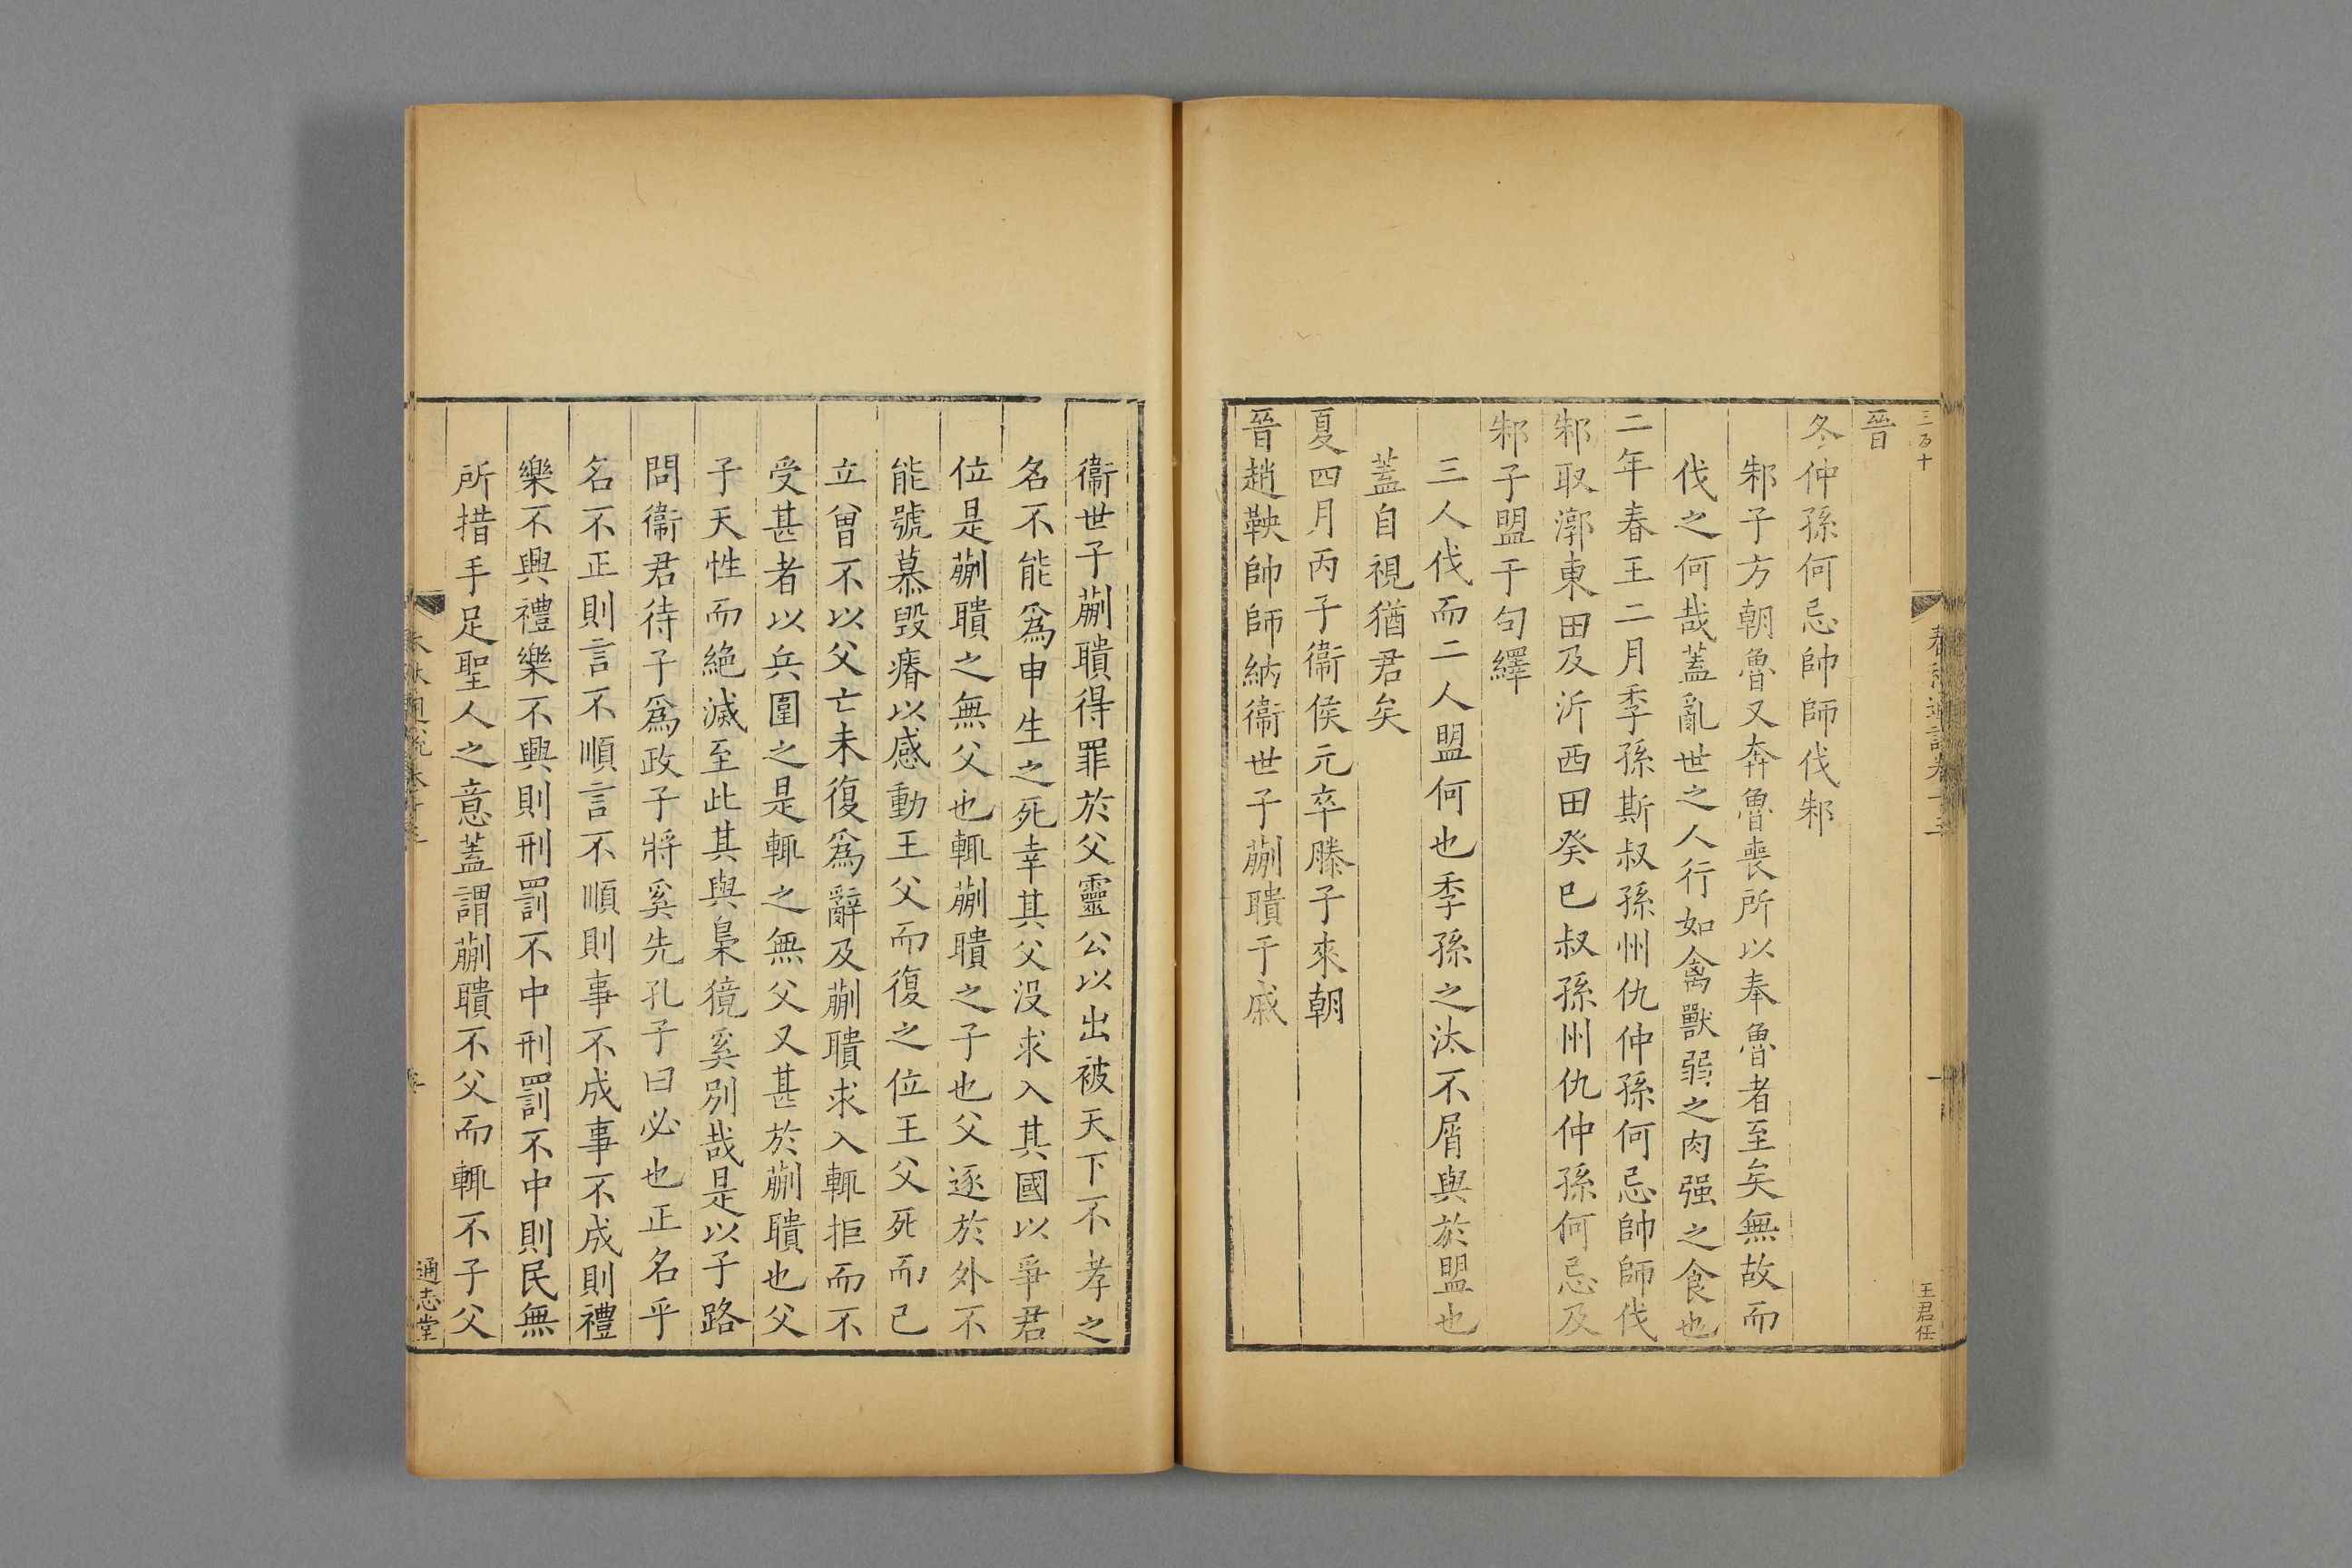 三百十
王君任
晉
冬仲孫何忌帥師伐邾
邾子方朝魯又奔魯喪所以奉魯者至矣無故而
伐之何哉蓋亂世之人行如禽獸弱之肉强之食也
二年春王二月季孫斯叔孫州仇仲孫何忌帥師伐
邾取漷東田及沂西田癸巳叔孫州仇仲孫何忌及
邾子盟于句繹
三人伐而二人盟何也季孫之汰不屑與於盟也
蓋自視猶君矣
夏四月丙子衞侯元卒滕子來朝
晉趙鞅帥師納衞世子蒯聵于戚
衞世子蒯聵得罪於父靈公以出被天下不孝之
名不能爲申生之死幸其父没求入其國以爭君
位是蒯聵之無父也輒蒯聵之子也父逐於外不
能號慕毁瘠以感動王父而復之位王父死而己
立曾不以父亡未復爲辭及蒯聵求入輒拒而不
受甚者以兵圍之是輒之無父又甚於蒯聵也父
子天性而絶滅至此其與梟獍奚别哉是以子路
問衞君待子爲政子將奚先孔子曰必也正名乎
名不正則言不順言不順則事不成事不成則禮
樂不興禮樂不興則刑罰不中刑罰不中則民無
所措手足聖人之意蓋謂蒯聵不父而輒不子父
通志堂